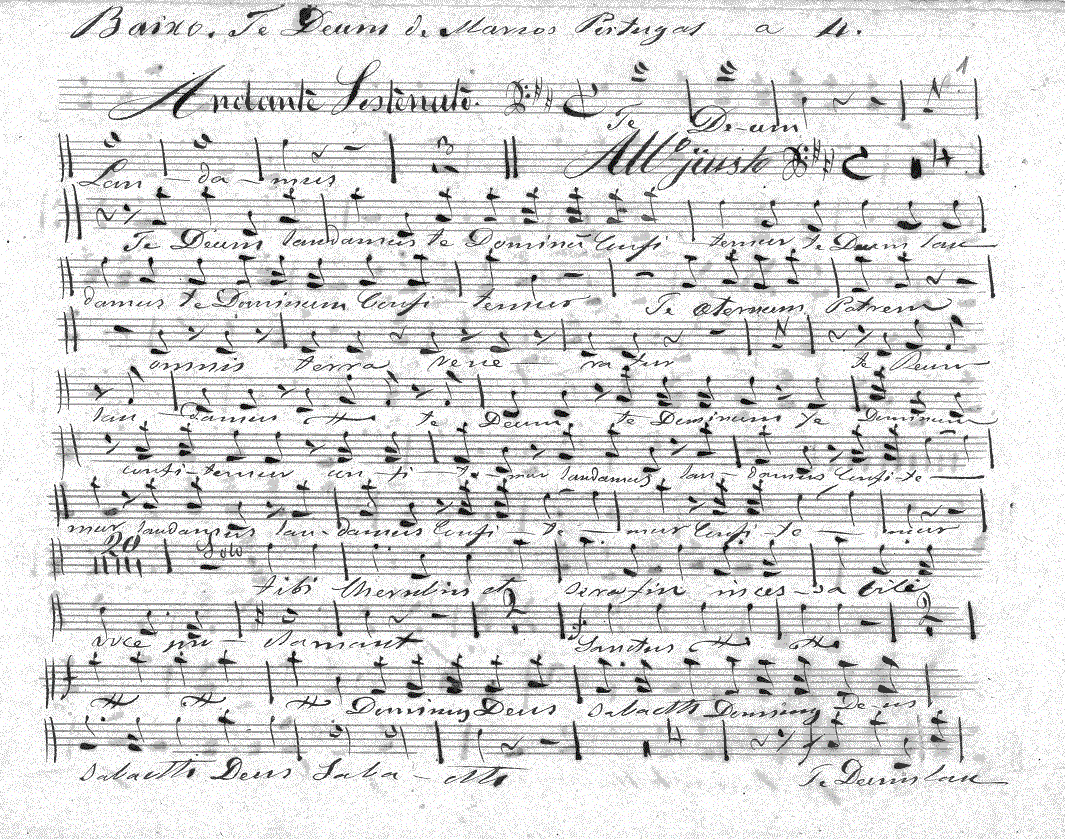 Baixo. Te Deum de Marcos Portugal a 4.
1
Andantè Sostenutò.
Te Deum
Lau - da - mus 3 All.º giusto 4
Te Deum laudamus te Dominũ Confi - temur te Deum lau
damus te Dominum Confi temur Te æternum Patrem
omnis terra vene - ra tur te Deum
lau - damus te Deum te Dominum te Dominum
confi - temur con - fi - te - mur laudamus lau - damus Confi - te
mur laudamus lau - damus Confi - te - mur Confi - te - mur
20 Solo
tibi Cherubin et Serafin inces - sa bile
voce pro - clamant 2 Sanctus 2
Dominus Deus Sabaoth Dominus De us
Sabaoth Deus Saba - oth 4 Te Deum lau